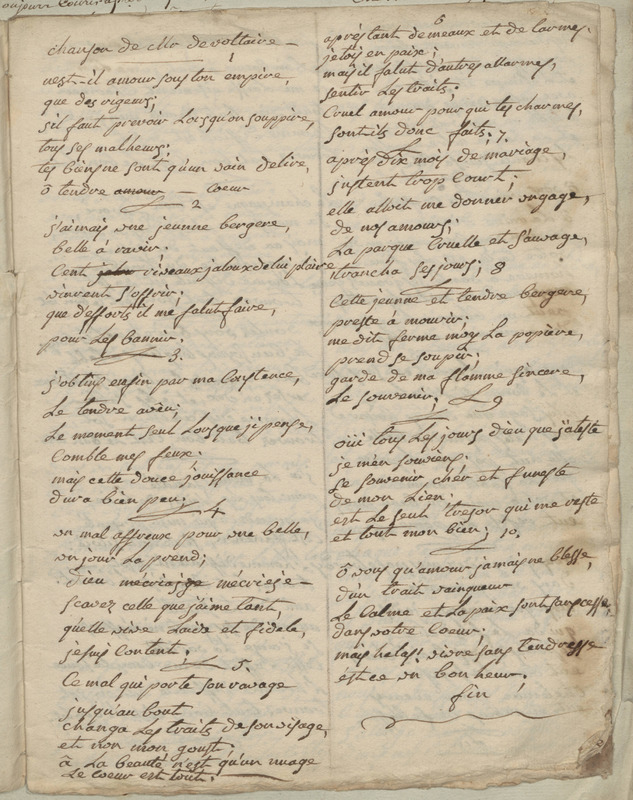 chanson de Mr de voltaire —
1
nest-il amour sous ton empire,
que des rigeurs;
s'il faut prevoir Lorsqu'on souppire,
tous ses malheurs;
tes biens ne sont qu'un vain delire,
ô tendre amour — coeur
2
j'aimais une jeunne bergere,
belle à ravir.
Cent jalou riveaux jaloux de lui plaire
vinrent s'offrir;
que d'efforts il me falut faire,
pour Les bannir.
3.
j'obtins enfin par ma Constence,
Le tendre aveu;
Le moment seul Lorsque j'i pense,
Comble mes feux.
mais cette douce jouissance
dura bien peu;
4
un mal affreux pour une belle,
un jour La prend;
dieu mecriai je mécrieje —
scavez celle que j'aime tant,
qu'elle vive Laide et fidele,
je suis Content.
5.
Ce mal qui porte son ravage
jusqu'au bout
changa Les traits de son visage,
et non mon goust;
à La beauté n'est qu'un nuage
Le coeur est tout.
6
aprés tant de meaux et de larmes,
jetois en paix;
mais il falut d'autres allarmes,
sentir Les traits;
Cruel amour pour qui tes charmes,
sont ils donc faits.
7.
aprés dix mois de mariage,
justent trop Court;
elle alloit me donner un gage,
de nos amours;
La parque Cruelle et sauvage,
trancha ses jours;
8
Cette jeunne et tendre bergere,
preste à mourir;
me dit ferma moy La popiére,
prend se soupir;
garde de ma flamme sincere,
Le souvenir;
9
oüi tous Les jours dieu que j'ateste
je m'en souviens.
Le souvenir chér et funeste
de mon Lien.
est Le seul tresor qui me reste
et tout mon bien;
10.
ô vous qu'amour jamais ne blesse,
d'un trait vainqueur
Le Calme et La paix sont sans cesse,
dans votre Coeur;
mais helas! vivre sans tendresse
ést ce un bonheur!
fin